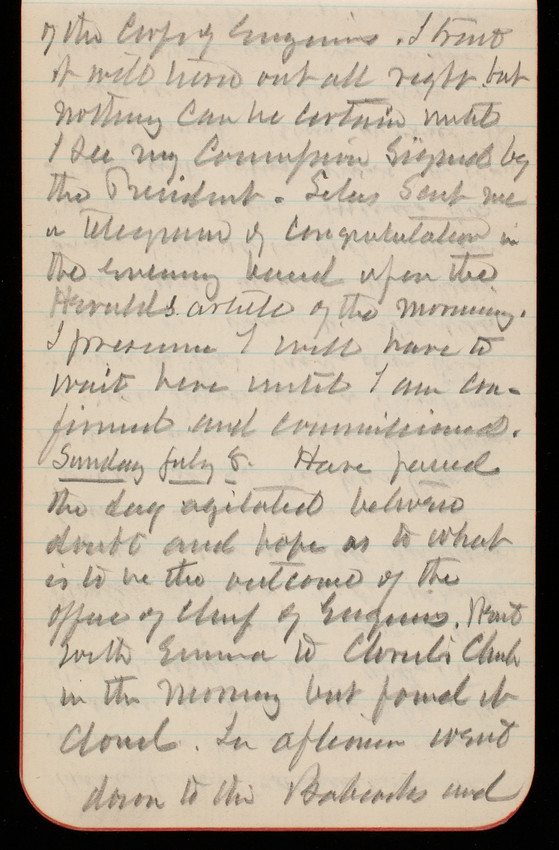 of the Corps of Engineers. I trust
it will turn out all right but
nothing can be certain until
I see my Commission Signed by
the President. Silas Sent me
a telegram of congratulation in
the evening based upon the
Heralds article of the morning.
I presume I will have to
wait here until I am con-
firmed and commissioned.
Sunday July 8. Have passed
the day agitated between
doubt and hope as to what
is to be the outcome of the
office of Chief of Engineers. Went
with Emma to Church
in the morning but found it
closed. In afternoon went
down to the Babcocks and